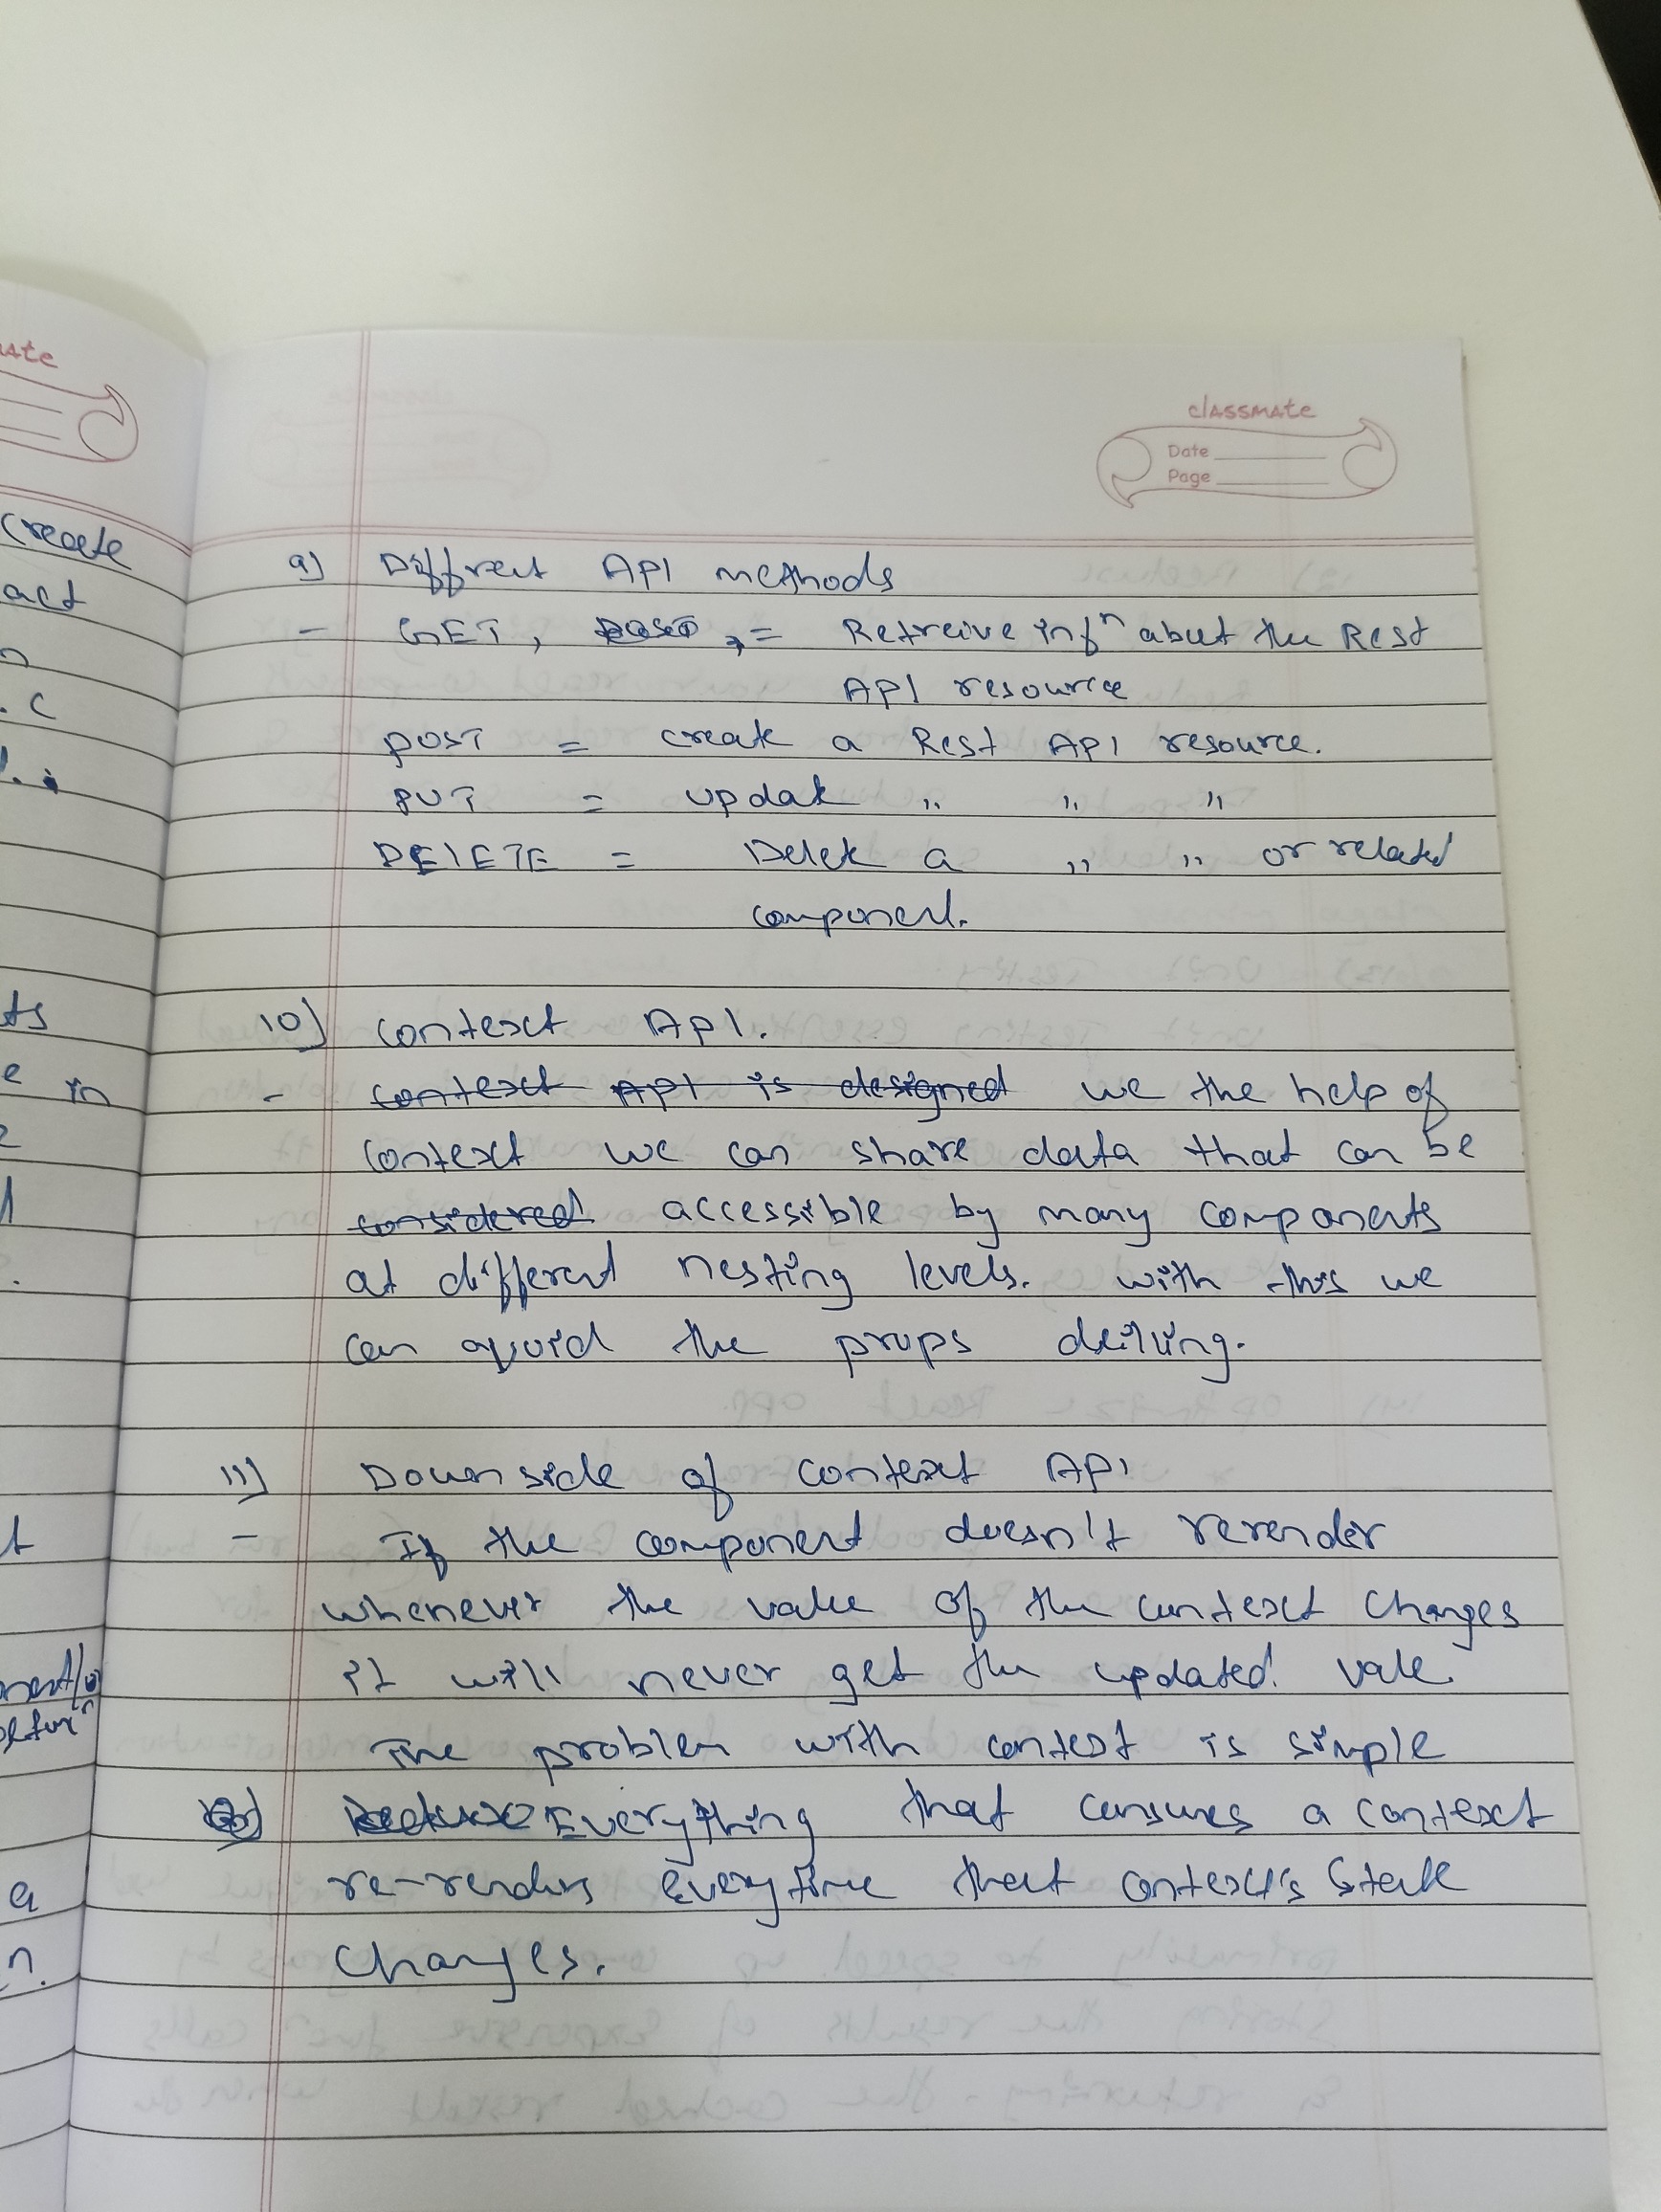 ate
create
act
n
. c
ts
e in
t
a
n.
classmate
Date
Page
9) Diffrent API methods
- GET, = Retreive infⁿ about the Rest
API resource
POST = create a Rest API resource.
PUT = update ,, ,, ,,
DELETE = Delete a ,, ,, or related
component.
10) Context API.
- context API is designed we the help of
context we can share data that can be
considered accessible by many components
at different nesting levels. with this we
can avoid the props drilling.
11) Downside of context API
- If the component doesn't rerender
whenever the value of the context changes
it will never get the updated value.
The problem with context is simple
Everything that consumes a context
re-renders everytime that context's state
changes.